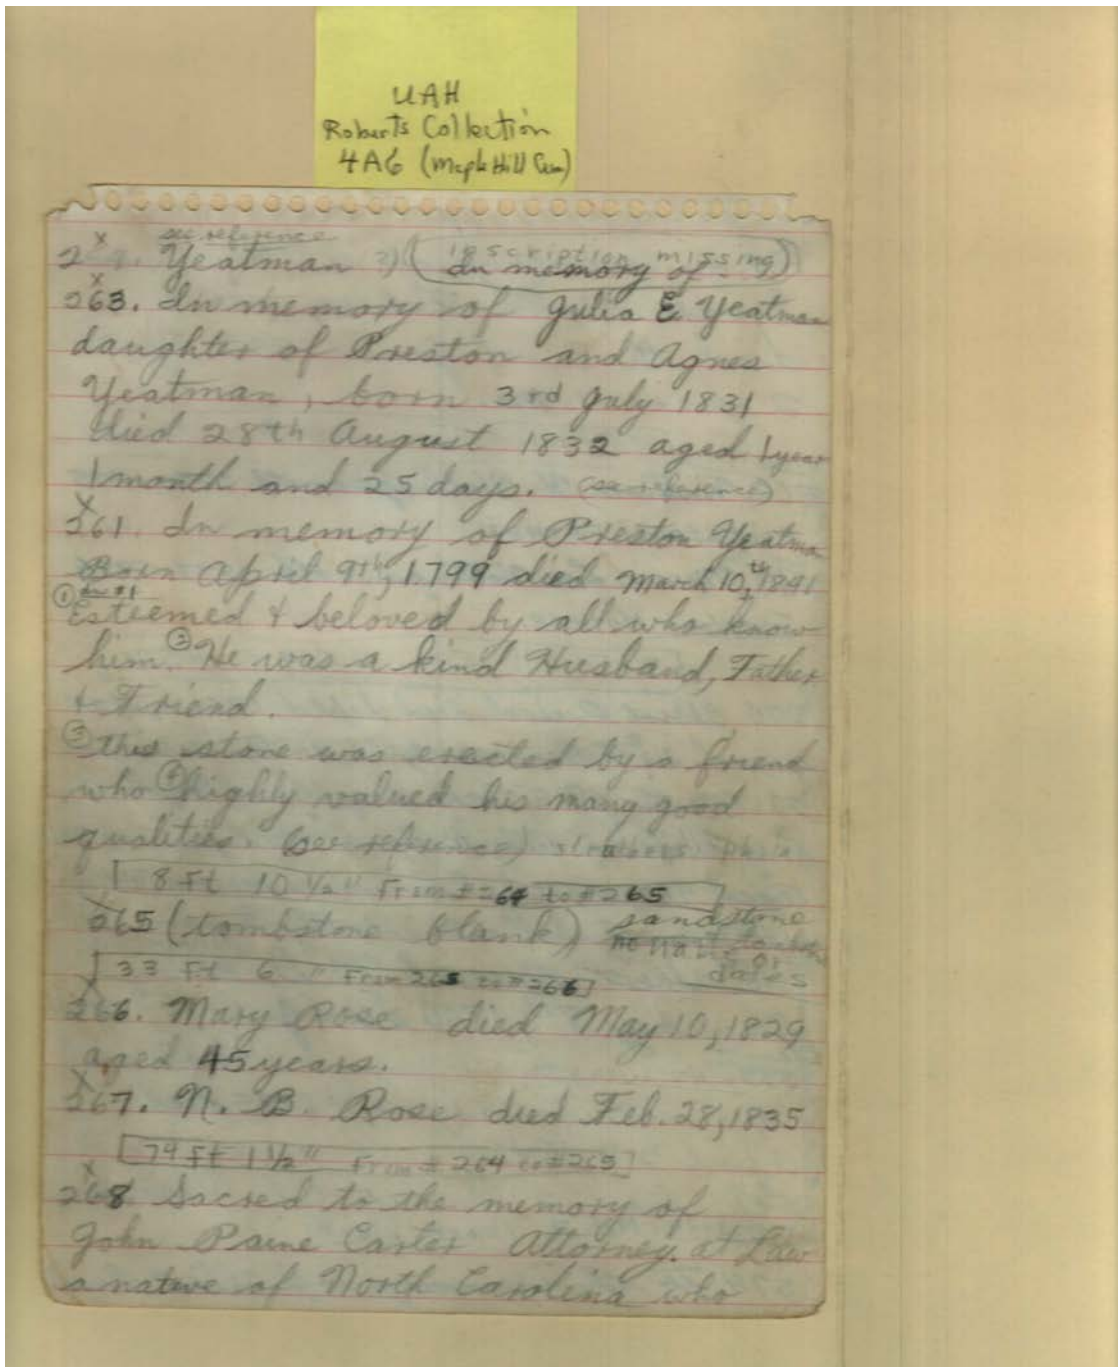 UAH
Roberts Collection
4A6 (Maple Hill Cem)
see reference
Yeatman (inscription missing)
In memory of
263. In memory of Julia E Yeatman
daughter of Preston and Agnes
Yeatman, born 3rd July 1831
died 28th August 1832 aged 1 year
1 month and 25 days. (see reference)
261. In memory of Preston Yeatman
Born April 9th, 1799 died March 10, 1841
① Esteemed & beloved by all who know
him. ② He was a kind Husband, Father
& Friend.
③ this stone was erected by a friend
who ④ highly valued his many good
qualities. (see reference)
8 Ft 10 1/2" From #264 to #265
265 (tombstone blank) sandstone
no name or
dates
33 Ft 6 " From 265 to #266
266. Mary Rose died May 10, 1829
aged 45 years.
267. N. B. Rose died Feb. 28, 1835
[79 Ft 1 1/2" From # 264 to #265]
268 Sacred to the memory of
John Paine Carter Attorney. at Law
a native of North Carolina who